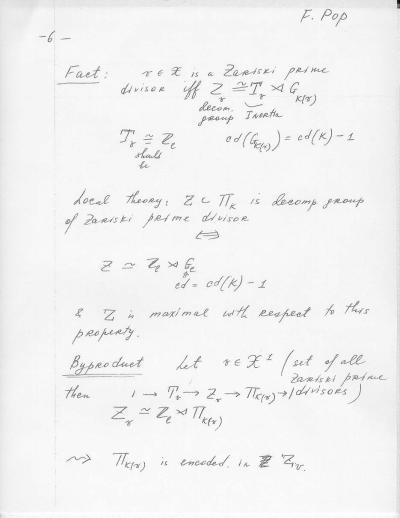 F. Pop
-6-
Fact: v ∈ X is a Zariski prime
divisor iff Z_v ≅ T_v ⋊ G_K(v)
decom. group Inertia
T_v ≅ Z_ℓ cd(G_K(v)) = cd(K) - 1
should be
Local theory: Z ⊂ Π_K is decomp group
of Zariski prime divisor
⟺
Z ≃ Z_ℓ ⋊ G_ℓ
cd = cd(K) - 1
& Z is maximal with respect to this
property.
Byproduct Let v ∈ X^1 (set of all
Zariski prime
then 1 → T_v → Z_v → Π_K(v) → 1 divisors)
Z_v ≃ Z_ℓ ⋊ Π_K(v)
⇝ Π_K(v) is encoded in Z_v.